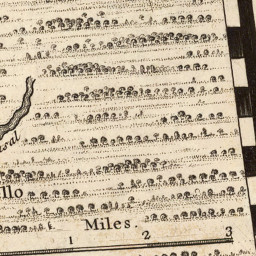 sal
llo
Miles.
1 2 3